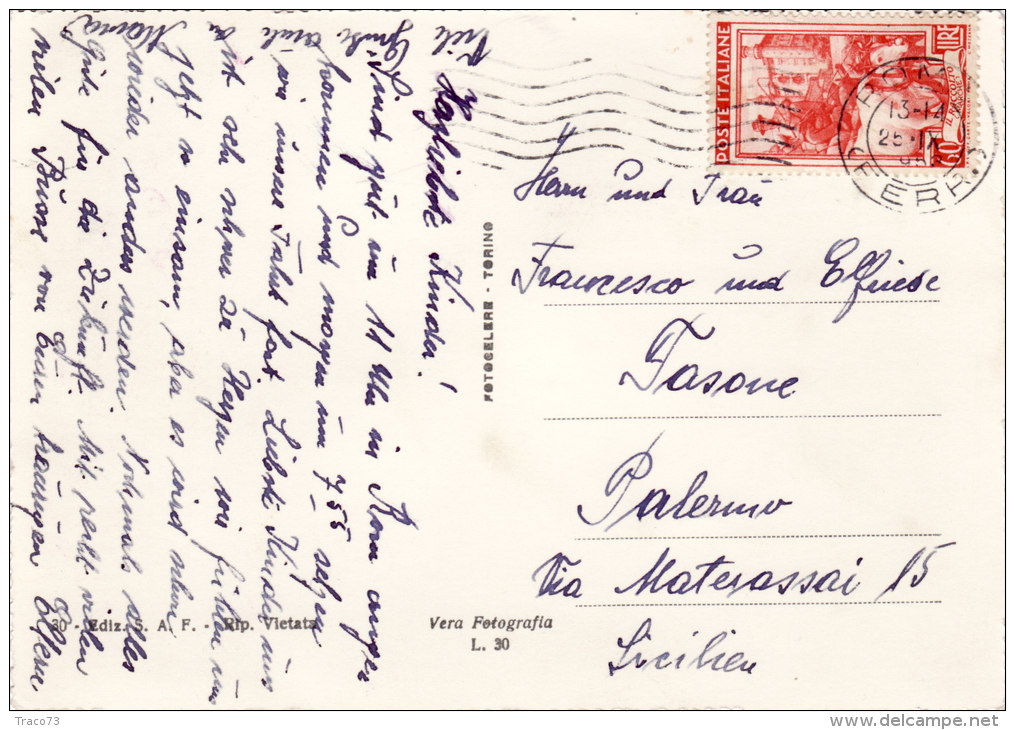 Herzliebste Kinder!
Sind gut um 11 Uhr in Rom angekommen und morgen um 7 55 setzen
wir unsere Fahrt fort. Liebste Kinder uns
ist sehr schwer zu Herzen wir fühlen uns
jetzt so einsam, aber es wird schon
wieder anders werden. Nochmals alles
Gute für die Zukunft. Mit recht vielen
vielen Bussi von Euren traurigen Eltern
Viele Grüße
Mama
POSTE ITALIANE
LIRE
60
ROMA
13-14
25·IX
FERR
Herrn und Frau
Francesco und Elfriese
Tasone
Palermo
Via Materassai 15
Sicilien
FOTOCELERE - TORINO
30 - Ediz. S. A. F. - Rip. Vietata
Vera Fotografia
L. 30
Traco73
www.delcampe.net